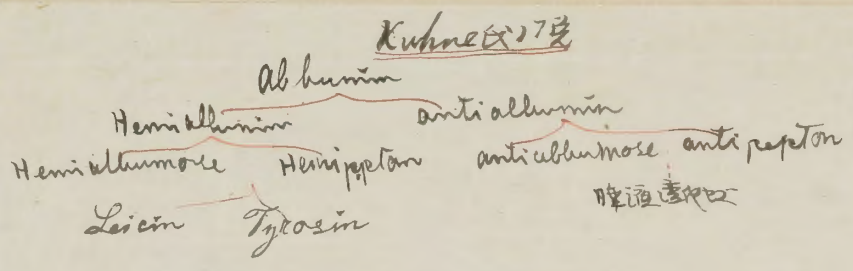 Kuhne氏ノ説
Albumin
Hemialbumin antialbumin
Hemialbumose Hemipepton antialbumose antipepton
膵液
Leicin Tyrosin